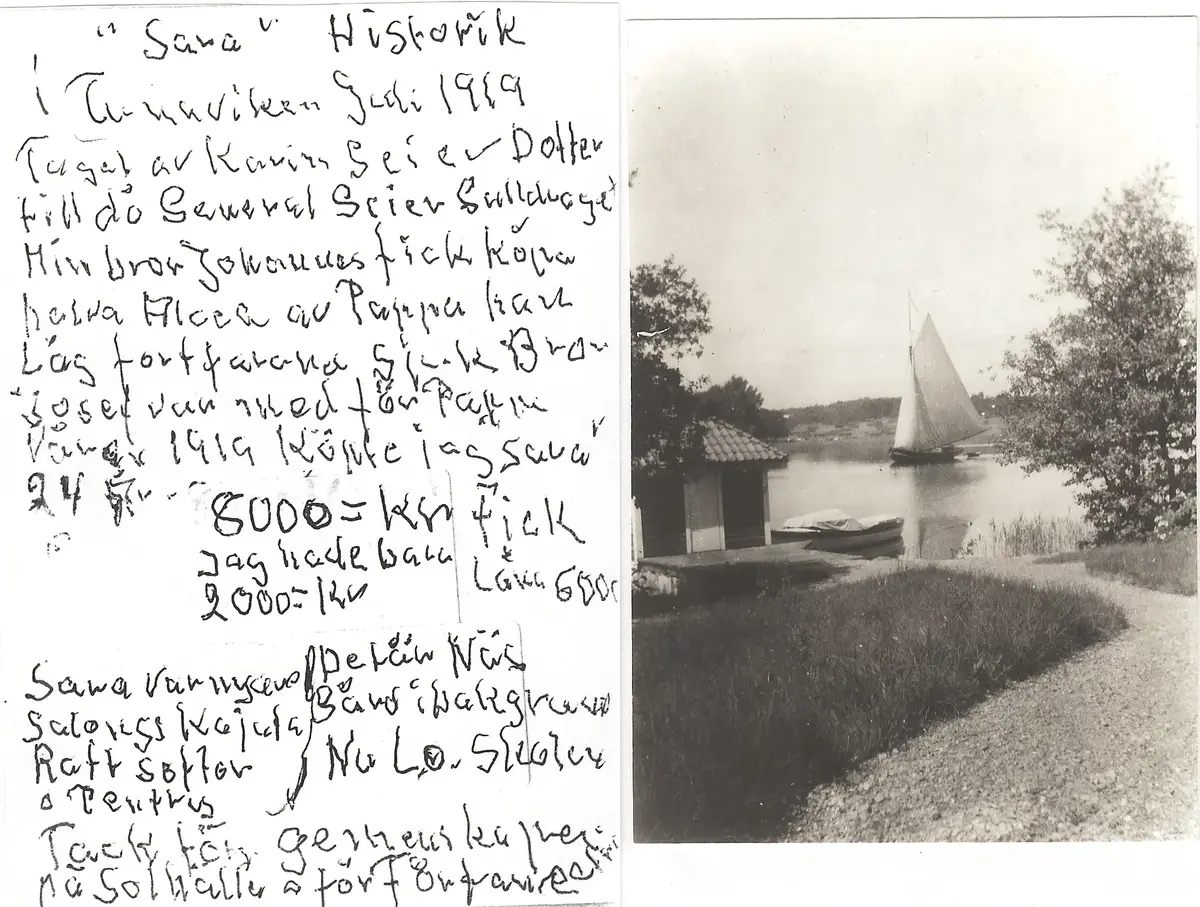 "Sara" Historik
i Tunaviken Juli 1919
Taget av Karin Seier Dotter
till då General Seier
Min bror Johannes fick köpa
halva av Pappa han
Låg fortfarande Sjuk Bror
Josef var med för Pappa
Våren 1919 Köpte jag Sara
24 År
8000= Kr fick
Jag hade bara
2000= Kr
Låna 6000
Sara var
Salongs Kajuta
Ratt
o Pentry
Det är Näs
i bakgrund
Nu L.o. Skolan
Tack för gemenskapen
på Solhalla o för